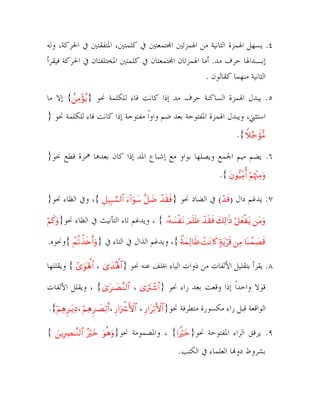 ٤. يسهل الهمزة الثانية من الهمزتين المجتمعتين في كلمتين، المتفقتين في الحركة، وله
إبـــدالها حرف مد. أما الهمزتان المجتمعتان في كلمتين المختلفتان في الحركة فيقرأ
الثانية منهما كقالون .
٥. يبدل الهمزة الساكنة حرف مد إذا كانت فاء للكلمة نحو {يُؤْمِنُ} إلا ما
استثني، ويبدل الهمزة المفتوحة بعد ضم واواً مفتوحة إذا كانت فاء للكلمة نحو {
مُّؤَجَّلًا}.
٦. يضم ميم الجمع ويصلها بواو مع إشباع المد إذا كان بعدها همزة قطع نحو{
وَمِنْهُمْ أُمِّيُّونَ }.
٧. يدغم دال (قَدْ) في الضاد نحو {فَقَدْ ضَلَّ سَوَآءَ ٱلسَّبِيلِ}، وفي الظاء نحو{
وَمَن يَفْعَلْ ذَٰلِكَ فَقَدْ ظَلَمَ نَفْسَهُۥ } ، ويدغم تاء التأنيث في الظاء نحو{وَكَمْ
قَصَمْنَا مِن قَرْيَةٍ كَانَتْ ظَالِمَةً}، ويدغم الذال في التاء في {وَأَخَذْتُمْ}ونحوه.
٨. يقرأ بتقليل الألفات من ذوات الياء بخلف عنه نحو {ٱلْهُدَىٰ ، ٱلْهَوَىٰ } ويقللها
قولا واحداً إذا وقعت بعد راء نحو {ٱشْتَرَىٰ ، ٱلنَّصَـٰرَىٰ} ، ويقلل الألفات
الواقعة قبل راء مكسورة متطرفة نحو{ٱلْأَبْرَارِ ، ٱلْأَشْرَارِ ،أَبْصَـٰرِهِمْ ،دِيَـٰرِهِمْ}.
٩. يرقق الراء المفتوحة نحو{خَيْرًا} ، والمضمومة نحو{وَهُوَ خَيْرُ ٱلنَّـٰصِرِينَ }
بشروط دونها العلماء في الكتب.